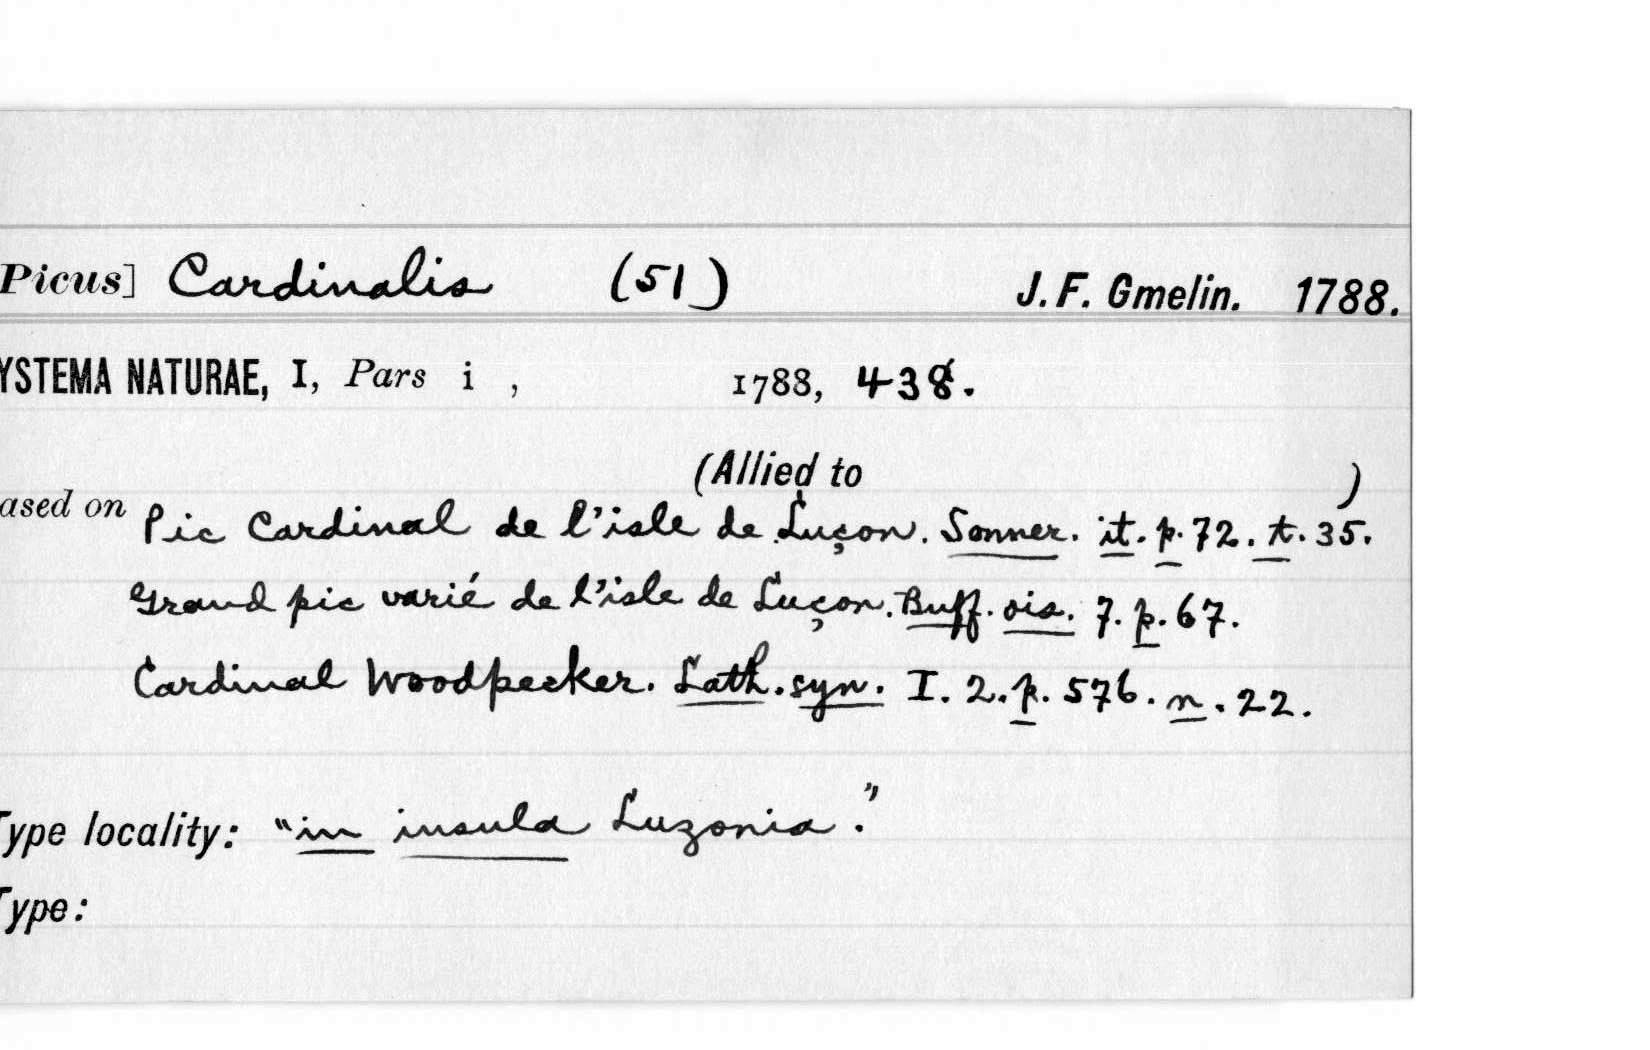 Picus] Cardinalis (51) J. F. Gmelin. 1788.
YSTEMA NATURAE, I, Pars i , 1788, 438.
(Allied to )
ased on Pic Cardinal de l'isle de Luçon. Sonner. it. p. 72. t. 35.
Grand pic varié de l'isle de Luçon. Buff. ois. 7. p. 67.
Cardinal Woodpecker. Lath. syn. I. 2. p. 576. n. 22.
Type locality: "in insula Luzonia."
Type: